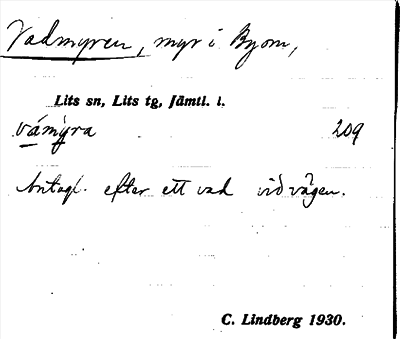 Vadmyren, myr i Byom,
Lits sn, Lits tg, Jämtl. l.
vámyra 209
Antagl. efter ett vad vid vägen.
C. Lindberg 1930.